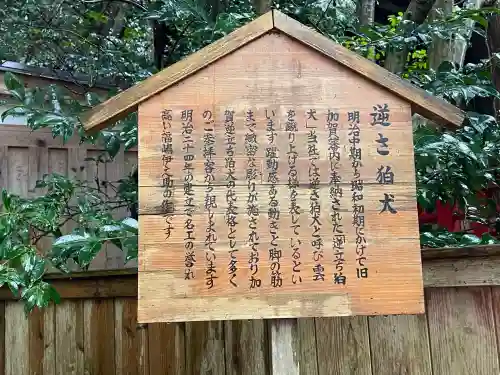 逆さ狛犬
明治中期から昭和初期にかけて旧
加賀藩内に奉納された逆立ち狛
犬(当社では逆さ狛犬と呼ぶ)雲
を蹴り上げる様を表しているとい
います躍動感ある動きと脚の筋
まで緻密な彫りが施されており加
賀逆立ち狛犬の代表格として多く
のご参拝客から親しまれています
明治二十四年の建立で名工の誉れ
高い福嶋伊之助の作です